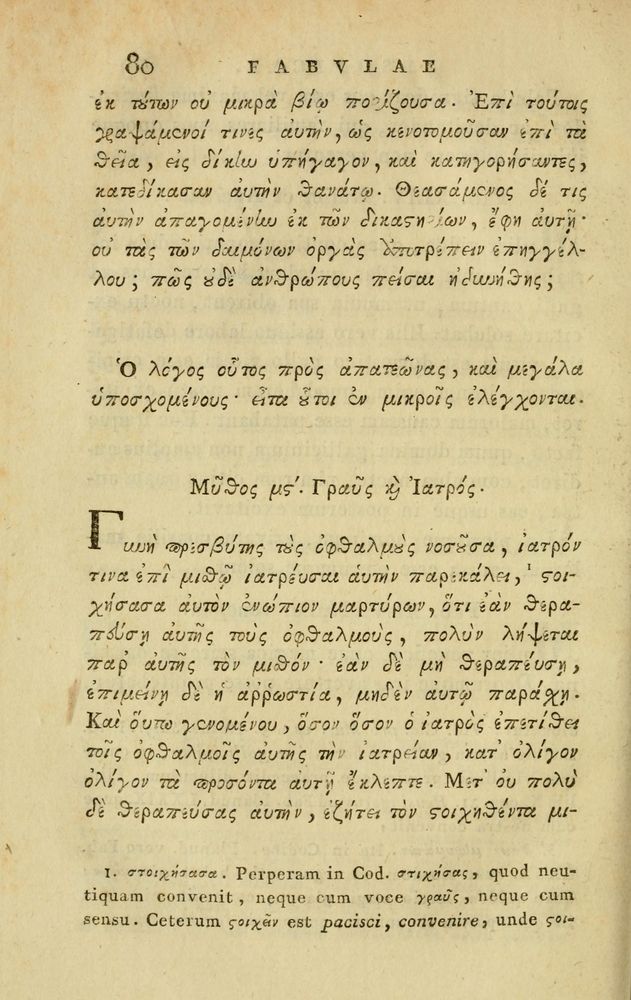 80 FABVLAE
ἐκ τȣ́των οὐ μικρὰ βίῳ πορίζουσα. Ἐπὶ τούτοις
γραψάμενοί τινες ἀυτὴν, ὡς κενοτομοῦσαν ἐπὶ τὰ
θεῖα, εἰς δίκην ὑπήγαγον, καὶ κατηγορήσαντες,
κατεδίκασαν ἀυτὴν θανάτῳ. Θεασάμενος δέ τις
ἀυτὴν ἀπαγομένην ἐκ τῶν δικαϛηρίων, ἔφη ἀυτῇ·
οὐ τὰς τῶν δαιμόνων ὀργὰς ἀποτρέπειν ἐπηγγέλ-
λου; πῶς ȣ̓δὲ ἀνθρώπους πεῖσαι ἠδυνήθης;
Ὁ λόγος οὗτος πρὸς ἀπατεῶνας, καὶ μεγάλα
ὑποσχομένους· εἶτα ȣ̓͂τοι ἐν μικροῖς ἐλέγχονται.
Μῦθος μϛʹ. Γραῦς ϗ̀ Ἰατρός.
Γυνὴ πρεσβύτης τȣ̀ς ὀφθαλμȣ̀ς νοσοῦσα, ἰατρόν
τινα ἐπὶ μιθῷ ἰατρέυσαι ἀυτὴν παρεκάλει, ¹ ϛοι-
χήσασα αὐτὸν ἐνώπιον μαρτύρων, ὅτι ἐὰν θερα-
πεύσῃ ἀυτῆς τοὺς ὀφθαλμοὺς, πολὺν λήψεται
παρ᾽ ἀυτῆς τὸν μιθόν· ἐὰν δὲ μὴ θεραπέυσῃ,
ἐπιμείνῃ δὲ ἡ ἀῤῥωστία, μηδὲν ἀυτῷ παράχῃ.
Καὶ ὅυτω γενομένου, ὅσον ὅσον ὁ ἰατρὸς ἐπετίθει
τοῖς ὀφθαλμοῖς ἀυτῆς τὴν ἰατρείαν, κατ᾽ ὀλίγον
ὀλίγον τὰ προσόντα ἀυτῇ ἔκλεπτε. Μετ᾽ ου πολὺ
δὲ θεραπεύσας ἀυτὴν, ἐζήτει τὸν ϛοιχηθέντα μι-
1. στοιχήσασα. Perperam in Cod. στιχήσας, quod neu-
tiquam convenit, neque cum voce γραῦς, neque cum
sensu. Ceterum ϛοιχᾶν est pacisci, convenire, unde ϛοι-